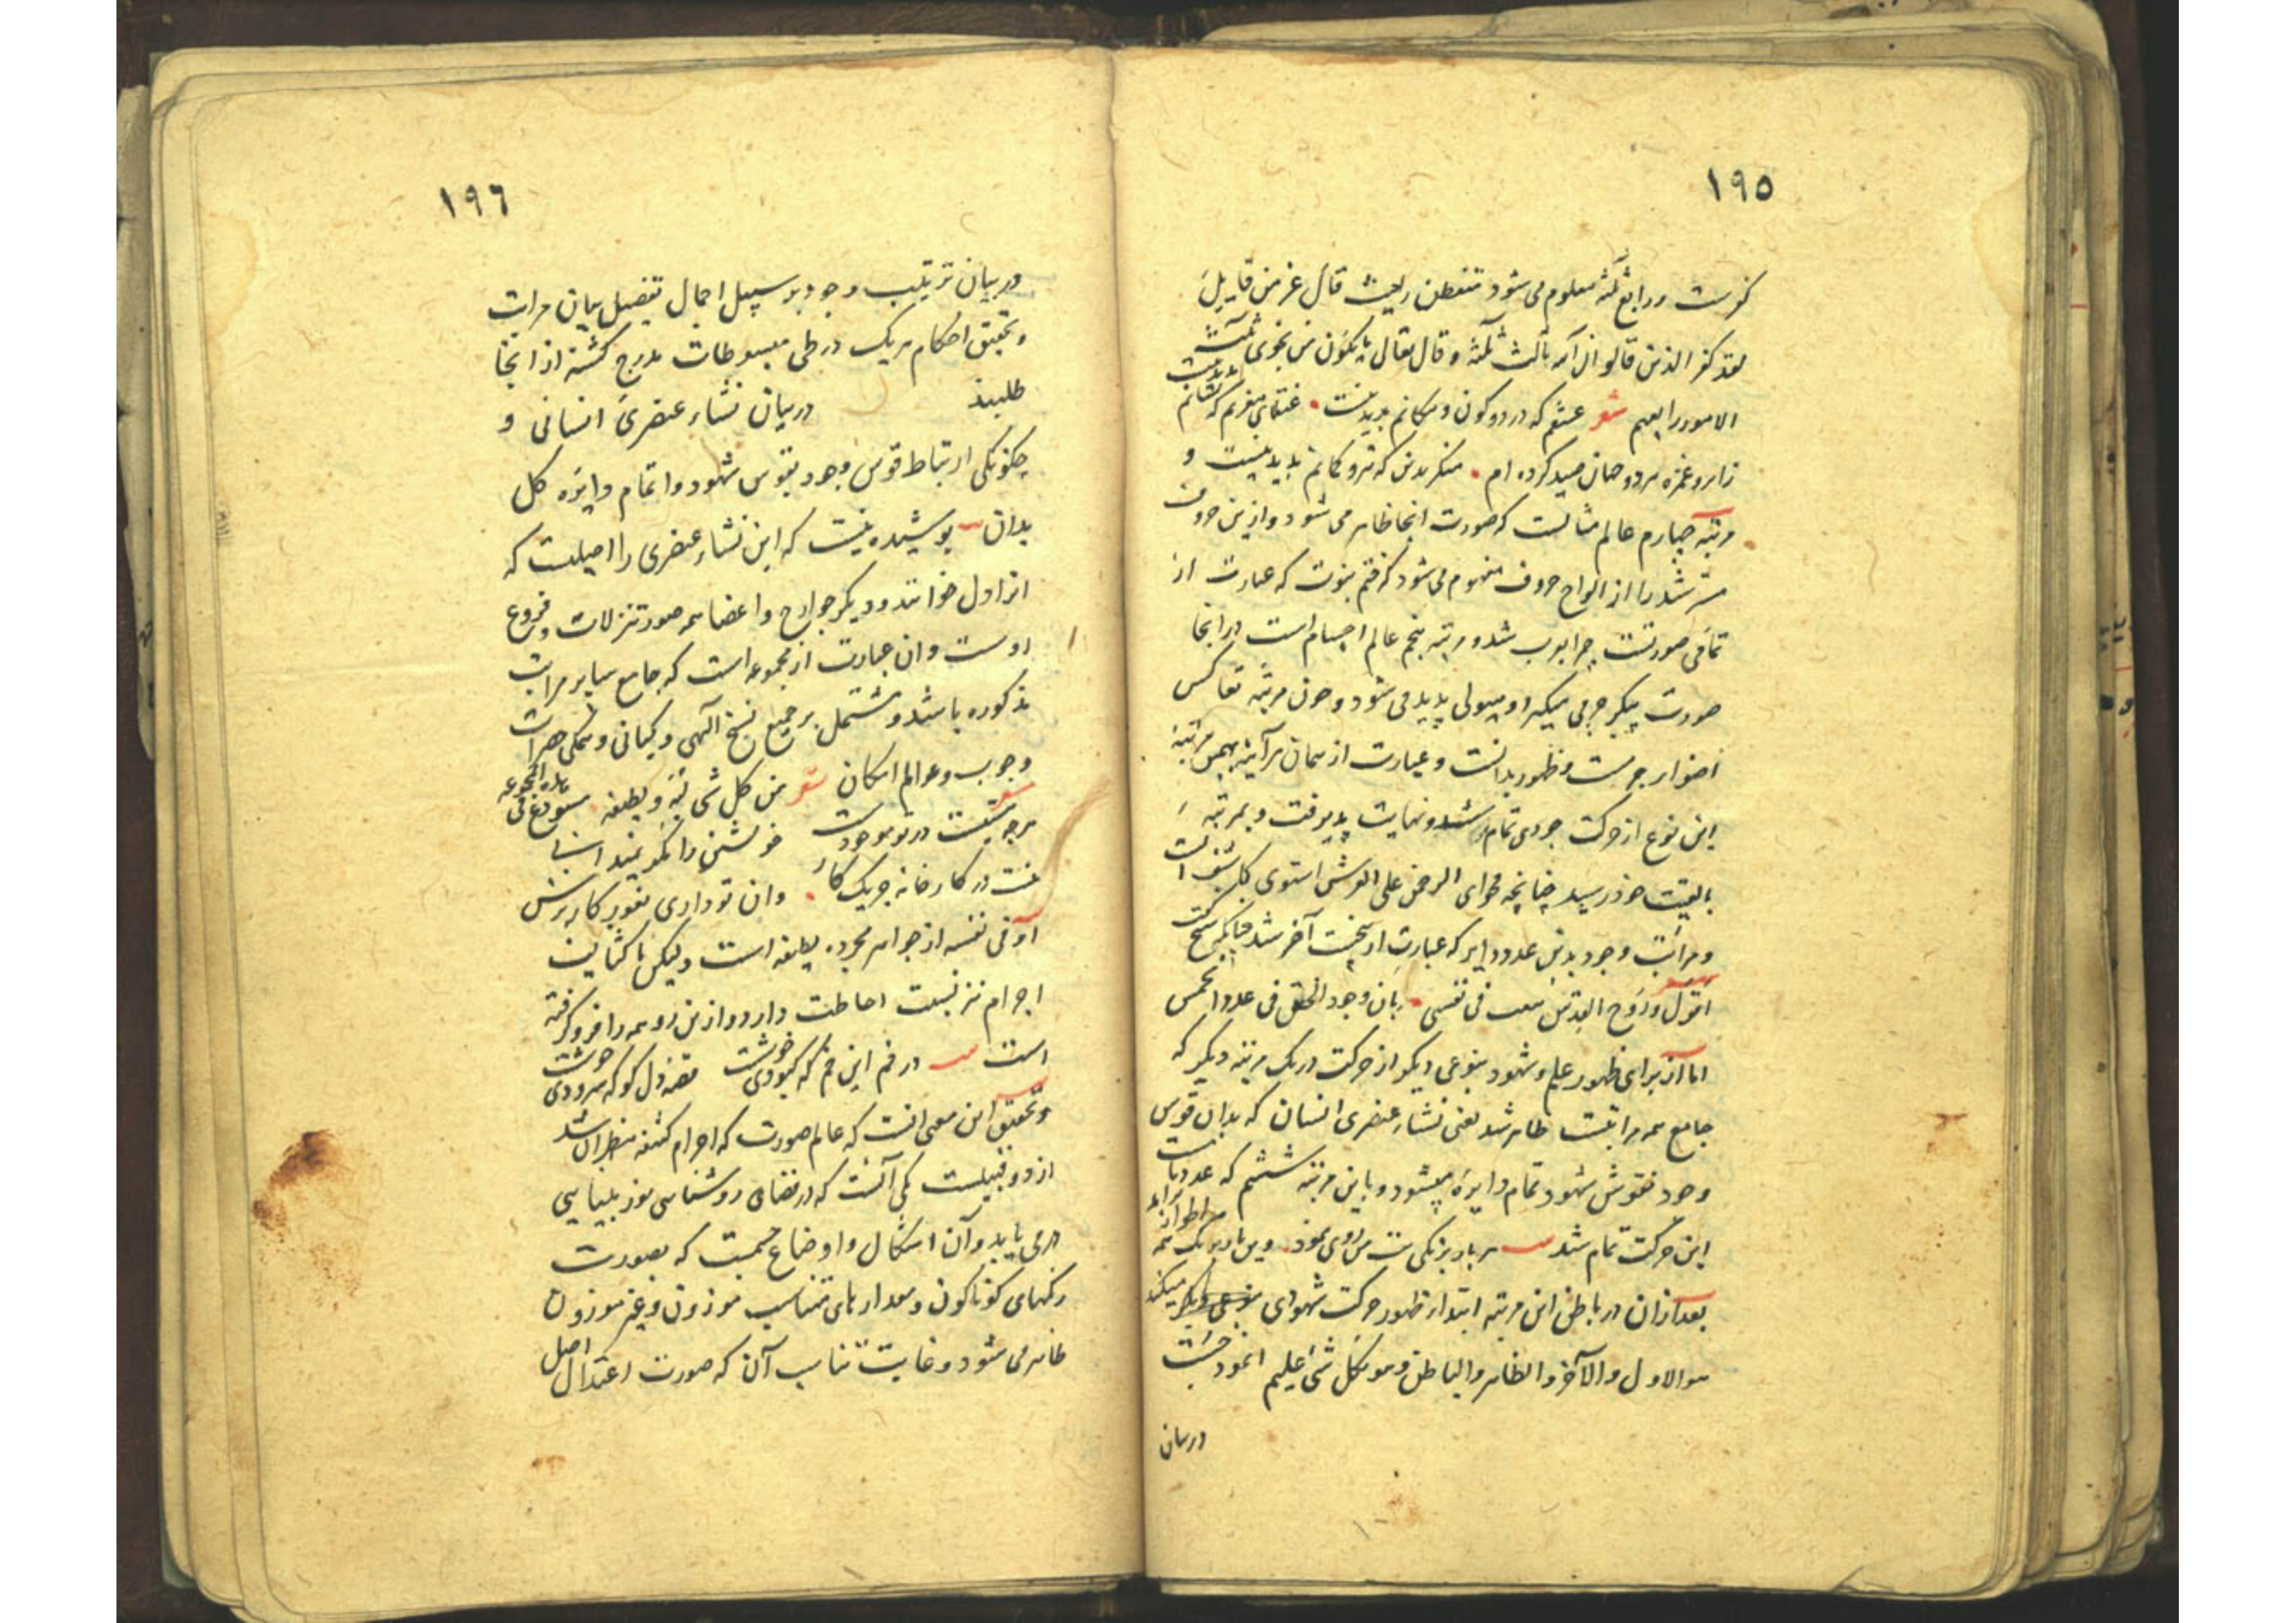 ١٩٥
کفرست و رابع ثلثه معلوم می شود تنفطن ریث قال عز من قایل
لقد کفر الذین قالوا ان الله ثالث ثلثة و قال تعالی ما یکون من نجوی ثلثة
الا هو رابعهم شعر عشقم که در دو کون و مکانم پدید نیست عنقای مغربم که نشانم پدید نیست
زابرو و غمزه هر دو جهان صید کرده ام منکر بدین که تیر و کمانم پدید نیست و
مرتبه چهارم عالم مثالست که صورت اینجا ظاهر می شود و ازین حروف
شد را از الواح حروف مفهوم می شود که ختم نبوت که عبارت از
تمامی صورتست چرا بوب شد و مرتبه پنجم عالم اجسام است در اینجا
صورت پیکر جرمی میگیرد و هیولی پدید می شود و چون مرتبه تعاکس
اضواء و ظهور بدانست و عبارت از همان هرآینه بهمین مرتبه
این نوع از حرکت وجودی تمام شد و نهایت پذیرفت و بمرتبه
بالقیت خود رسید چنانچه فحوای الرحمن علی العرش استوی کاشف است
و مراتب وجود بدین عدد دایر که عبارت از پنجست آخر شد
شعر
اقول و روح القدس ینفث فی نفسی بان وجود الحق فی عدد الخمس
اما از برای ظهور علم و شهود بنوعی دیگر از حرکت در یک مرتبه دیگر که
جامع همه مراتبست ظاهر شد یعنی نشاء عنصری انسان که بدان قوس
وجود بقوس شهود تمام دایره میشود و باین مرتبه ششم که عدد تامست
این حرکت تمام شد هر بار برنگی بت من روی نمود وین بار برنگ همه اطوار برآمد
بعد ازان در باطن این مرتبه ابتداء ظهور حرکت شهودی میکند
هو الاول و الآخر و الظاهر و الباطن و هو بکل شیء علیم
در بیان
١٩٦
در بیان ترتیب وجود بر سبیل اجمال تفصیل بیان مراتب
و تحقیق احکام هر یک در طی مبسوطات مدرج گشته از انجا
طلبند در بیان نشاء عنصری انسانی و
چگونگی ارتباط قوس وجود بقوس شهود و اتمام دایره کل
بدان پوشیده نیست که این نشاء عنصری را اصیلست که
انرا دل خوانند و دیگر جوارح و اعضا همه صور تنزلات و فروع
اوست و ان عبارت از مجموعه است که جامع سایر مراتب
مذکوره باشد و مشتمل بر جمیع نسخ الهی و کیانی و ممکنی حضرات
وجوب و عوالم امکان شعر من کل شیء لبه و لطیفه مستودع فی هذه المجموعه
شعر
هر چه هست در تو موجودست خویشتن را نکو نمیدانی
نیست در کارخانه جز یک کار وان تو داری بغور کار برس
و فی نفسه از جواهر مجرده لطیفه است ولیکن با کثایف
اجرام نیز نسبت احاطت دارد و ازین رو همه را فرو گرفته
است در خم این خم که کبودی خوشست قصه دل گو که سرودی خوشست
و تحقیق این معنی انست که عالم صورت که اجرام کثیفه منظر آن باشد
از دو قبیلست یکی آنست که در فضای روشناسی نور بینایی
در می یابد و آن اشکال و اوضاع جسمیت که بصورت
رنگهای گوناگون و مقدارهای متناسب موزون و غیر موزون
ظاهر می شود و غایت تناسب آن که صورت اعتدال اصل